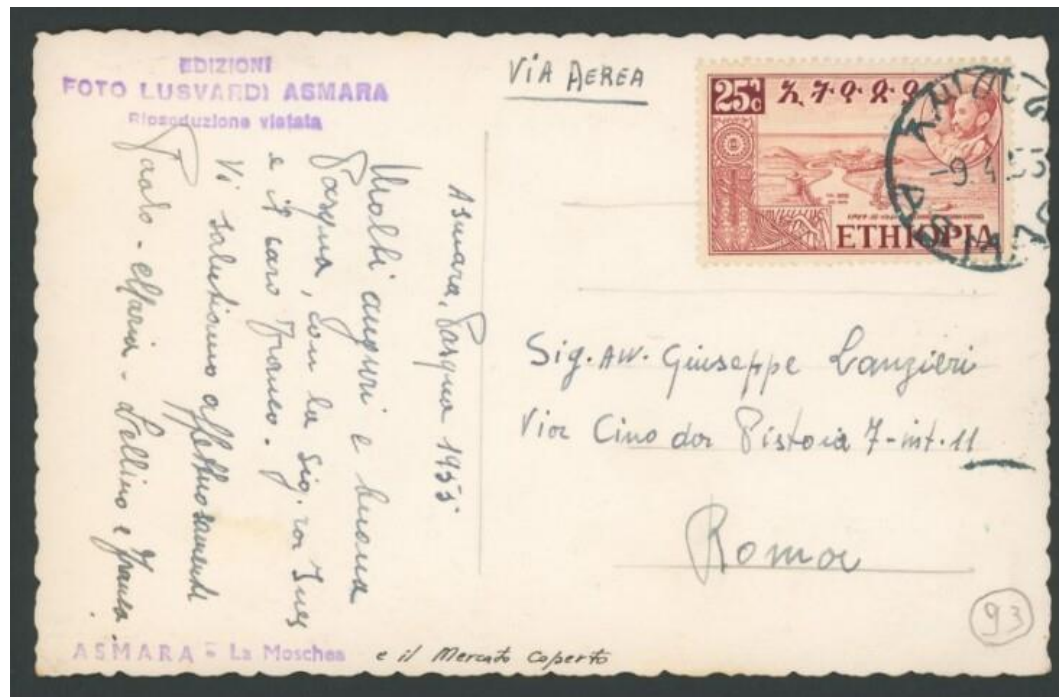 EDIZIONI
FOTO LUSVARDI ASMARA
Riproduzione vietata
VIA AEREA
25c
ETHIOPIA
-9.4.55
Asmara, Pasqua 1955
Molti auguri e buona
Pasqua, con la Sig.ra Ines
e il caro Franco.
Vi salutiamo affettuosamente
Paolo - Maria - Lellino e Franca.
Sig. Avv. Giuseppe Lanzieri
Via Cino da Pistoia 7-int.11
Roma
93
ASMARA - La Moschea e il Mercato Coperto